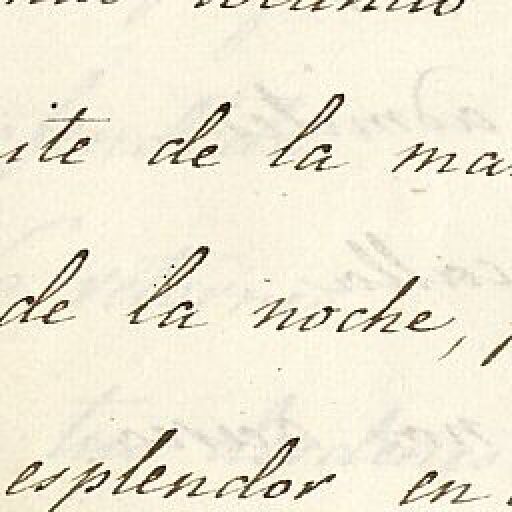 ite de la ma
de la noche,
esplendor en